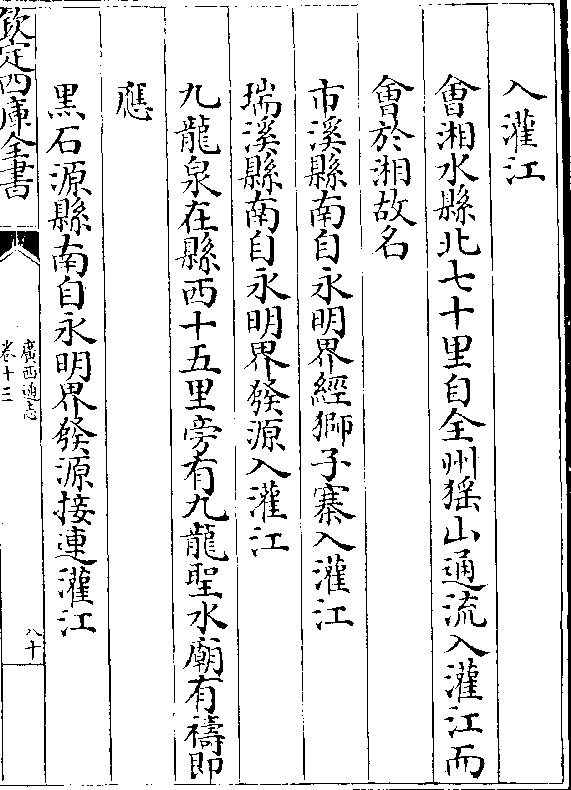 入灌江
會湘水縣北七十里自全州猺山通流入灌江而
會於湘故名
市溪縣南自永明界經獅子寨入灌江
瑞溪縣南自永明界發源入灌江
九龍泉在縣西十五里旁有九龍聖水廟有禱即
應
黑石源縣南自永明界發源接連灌江
欽定四庫全書
廣西通志
卷十三
八十